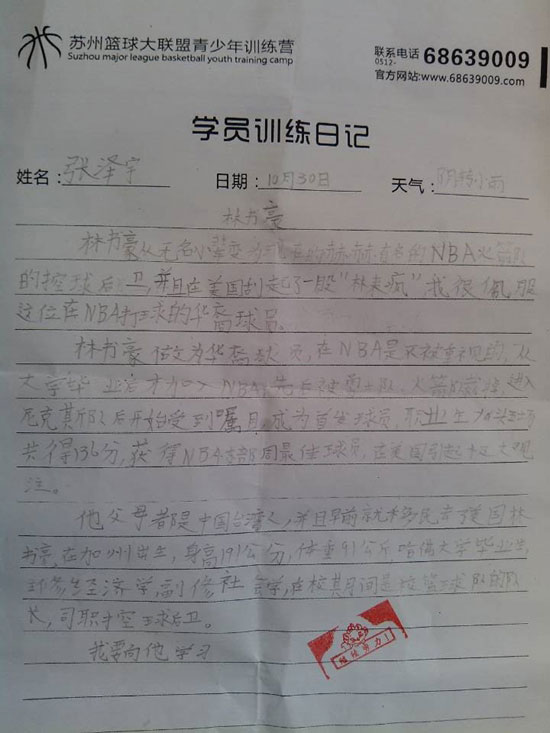 苏州篮球大联盟青少年训练营
Suzhou major league basketball youth training camp
联系电话 0512- 68639009
官方网站:www.68639009.com
学员训练日记
姓名: 张泽宇 日期: 10月30日 天气: 阴转小雨
林书豪
林书豪从无名小辈变为现在的赫赫有名的NBA火箭队
的控球后卫,并且在美国刮起了一股“林来疯”我很佩服
这位在NBA打球的华裔球员。
林书豪做为华裔球员,在NBA是不被重视的,从
大学毕业后才加入NBA,先后被勇士队、火箭队裁掉,进入
尼克莫斯队后开始受到嘱目,成为首发球员,职业生
共得136分,获得NBA东部周最佳球员,在美国引起极大观
注。
他父母者是中国台湾人,并且早前就移民去了美国林
书豪,在加州出生,身高191公分,体重91公斤哈佛大学毕业生,
经济学副修社会学,在校其间是校篮球队的队
长,司职控球后卫。
我要向他学习
继续努力!